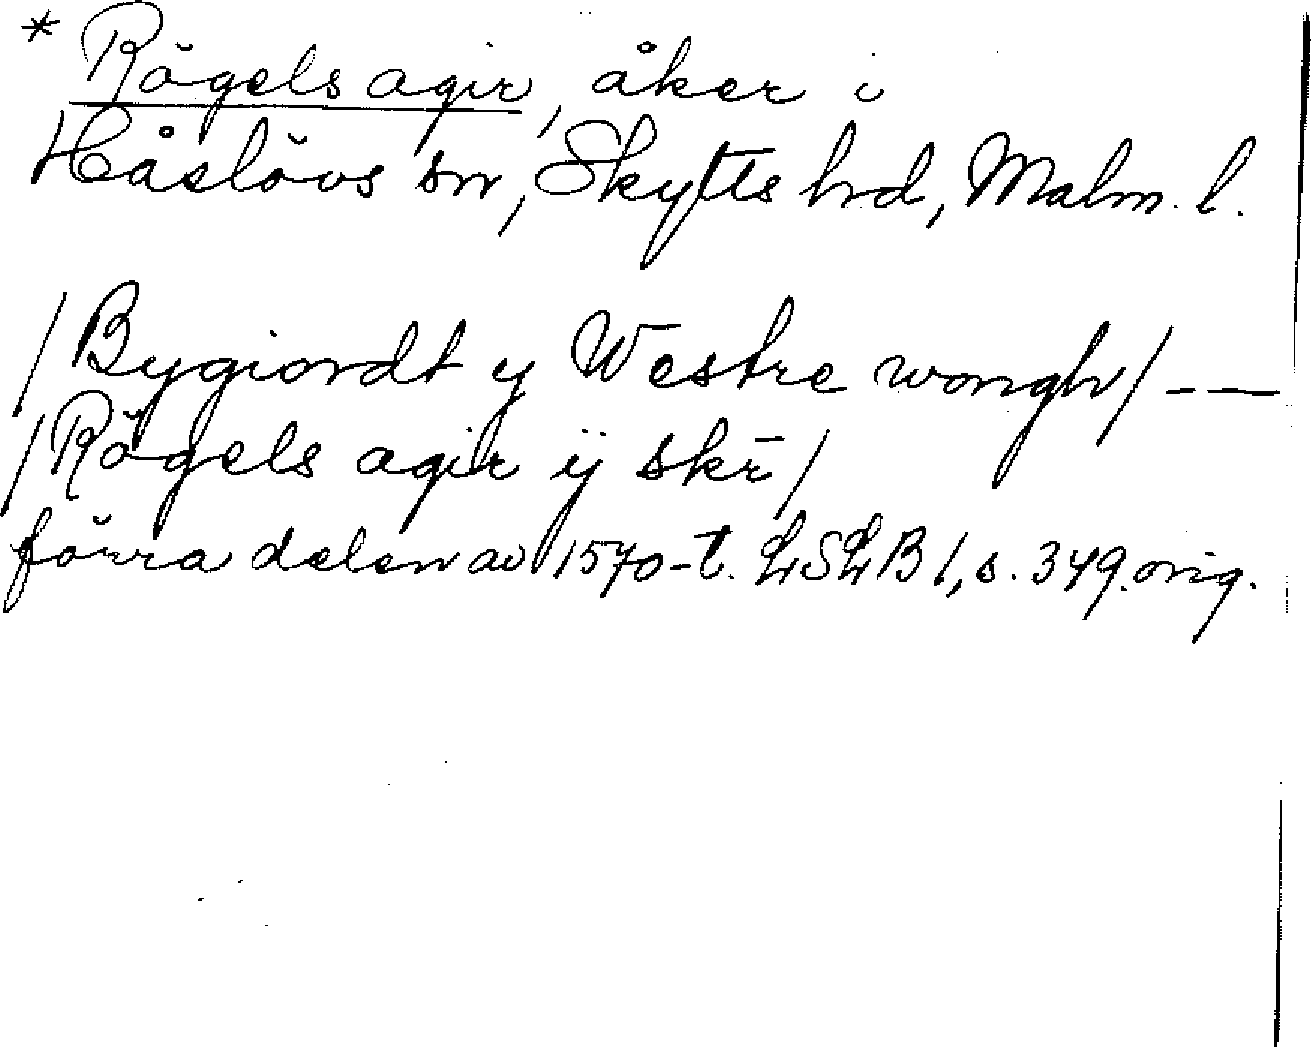 * Rögels agir, åker i
Håslövs sn, Skytts hd, Malm. l.
/Bygiordt y Westre wongh/ - —
/Rögels agir ÿ skē/
förra delen av 1570-t. LSLB 1, s. 349. orig.